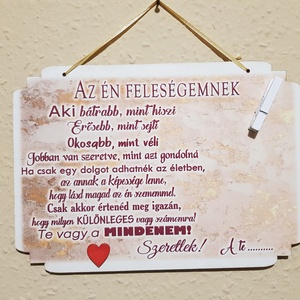 AZ ÉN FELESÉGEMNEK
Aki bátrabb, mint hiszi
Erősebb, mint sejti
Okosabb, mint véli
Jobban van szeretve, mint azt gondolná
Ha csak egy dolgot adhatnék az életben,
az annak a képessége lenne,
hogy lásd magad az én szemammel.
Csak akkor értenéd meg igazán,
hogy milyen KÜLÖNLEGES vagy számomra!
Te vagy a MINDENEM!
Szeretlek! A te..........